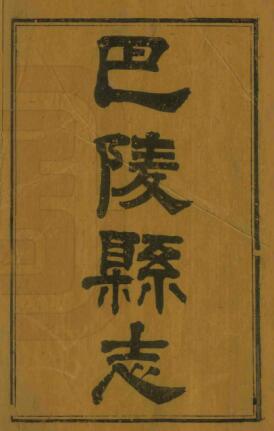 巴陵縣志